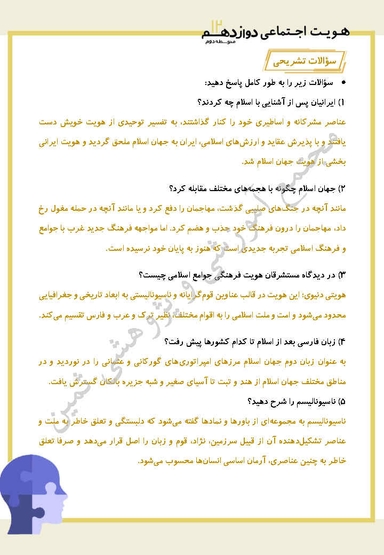 هویت اجتماعی دوازدهم ۱۲
متوسطه دوم
سؤالات تشریحی
• سؤالات زیر را به طور کامل پاسخ دهید:
۱) ایرانیان پس از آشنایی با اسلام چه کردند؟
عناصر مشرکانه و اساطیری خود را کنار گذاشتند، به تفسیر توحیدی از هویت خویش دست
یافتند و با پذیرش عقاید و ارزش‌های اسلامی، ایران به جهان اسلام ملحق گردید و هویت ایرانی
بخشی از هویت جهان اسلام شد.
۲) جهان اسلام چگونه با هجمه‌های مختلف مقابله کرد؟
مانند آنچه در جنگ‌های صلیبی گذشت، مهاجمان را دفع کرد و یا مانند آنچه در حمله مغول رخ
داد، مهاجمان را درون فرهنگ خود جذب و هضم کرد. اما مواجهه فرهنگ جدید غرب با جوامع
و فرهنگ اسلامی تجربه جدیدی است که هنوز به پایان خود نرسیده است.
۳) در دیدگاه مستشرقان هویت فرهنگی جوامع اسلامی چیست؟
هویتی دنیوی: این هویت در قالب عناوین قوم‌گرایانه و ناسیونالیستی به ابعاد تاریخی و جغرافیایی
محدود می‌شود و امت و ملت اسلامی را به اقوام مختلف، نظیر ترک و عرب و فارس تقسیم می‌کند.
۴) زبان فارسی بعد از اسلام تا کدام کشورها پیش رفت؟
به عنوان زبان دوم جهان اسلام مرزهای امپراتوری‌های گورکانی و عثمانی را در نوردید و در
مناطق مختلف جهان اسلام از هند و تبت تا آسیای صغیر و شبه جزیره بالکان گسترش یافت.
۵) ناسیونالیسم را شرح دهید؟
ناسیونالیسم به مجموعه‌ای از باورها و نمادها گفته می‌شود که دلبستگی و تعلق خاطر به ملت و
عناصر تشکیل‌دهنده آن از قبیل سرزمین، نژاد، قوم و زبان را اصل قرار می‌دهد و صرفا تعلق
خاطر به چنین عناصری، آرمان اساسی انسان‌ها محسوب می‌شود.
مجتمع آموزشی و پژوهشی ثمین